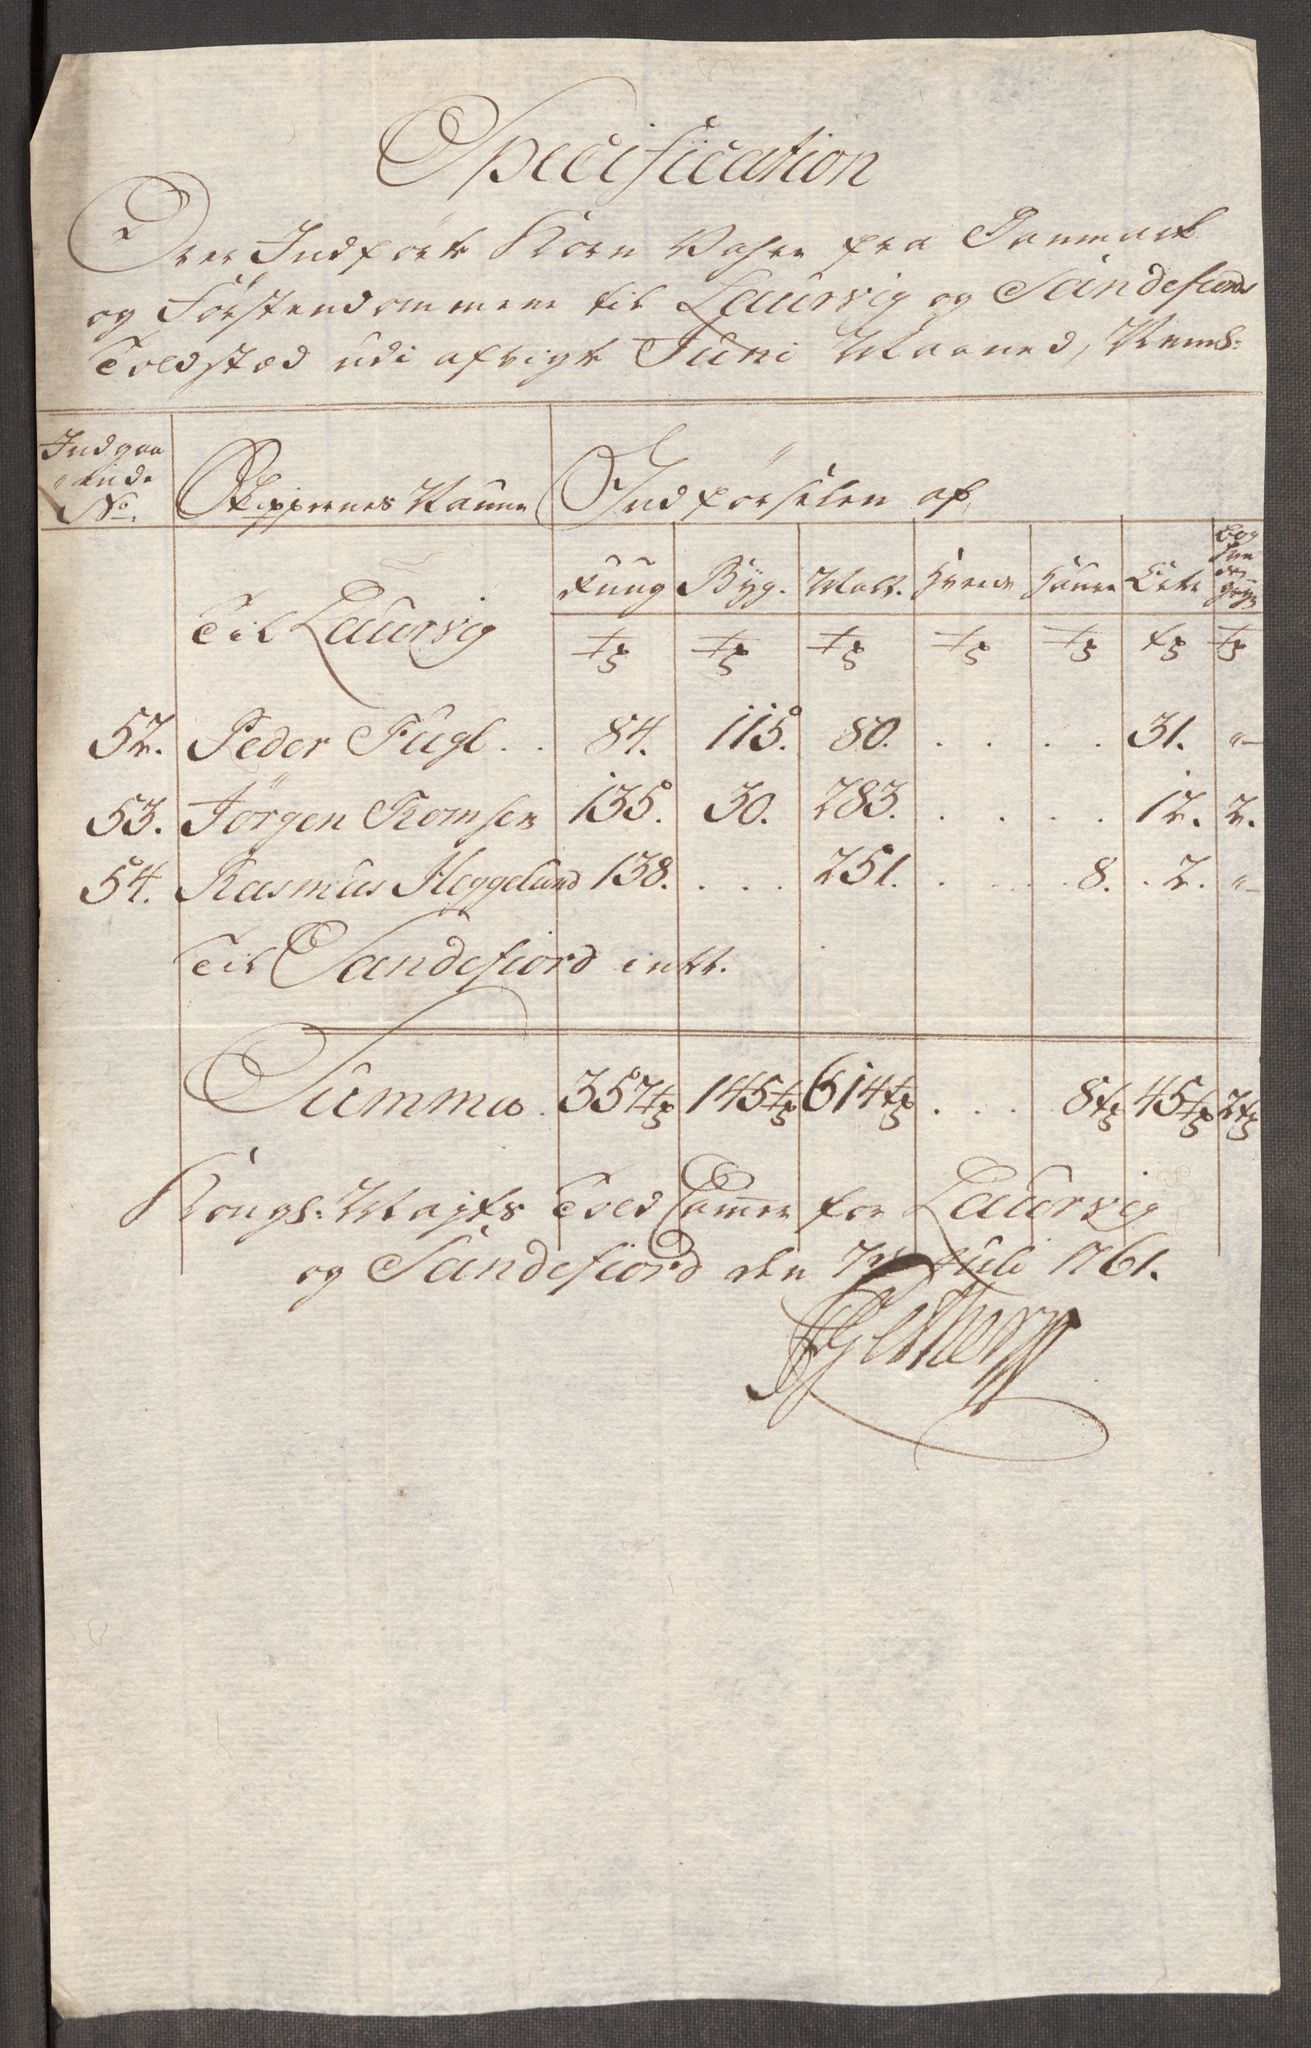 Specification
Over Indført Korn Vahre fra Danmark
og Førstendommene til Laurvig og Sandefiords
Toldsted udi afvigte Juni Maaned, Neml:
Indgaa
ende
No.
Skippernes Naune
Indførselen af
Ruug Byg. Malt. Hvede Haure Erter Bog
Til Laurvig
Tr Tr Tr Tr Tr Tr Tr
52. Peder Fugl . . 84. 115. 80. . . . . 31. "
53. Jørgen Tomsen 135. 30. 283. . . . . 12. 2.
54. Rasmus Heggelund 138. . . . 251. . . . 8. . 2. "
Til Sandefiord intet.
Summa . 357 Tr 145 Tr 614 Tr . . . 8 Tr 45 Tr 2 Tr
Kongl: Mayts Told Cammer for Laurvig
og Sandefiord den 7de Juli 1761.